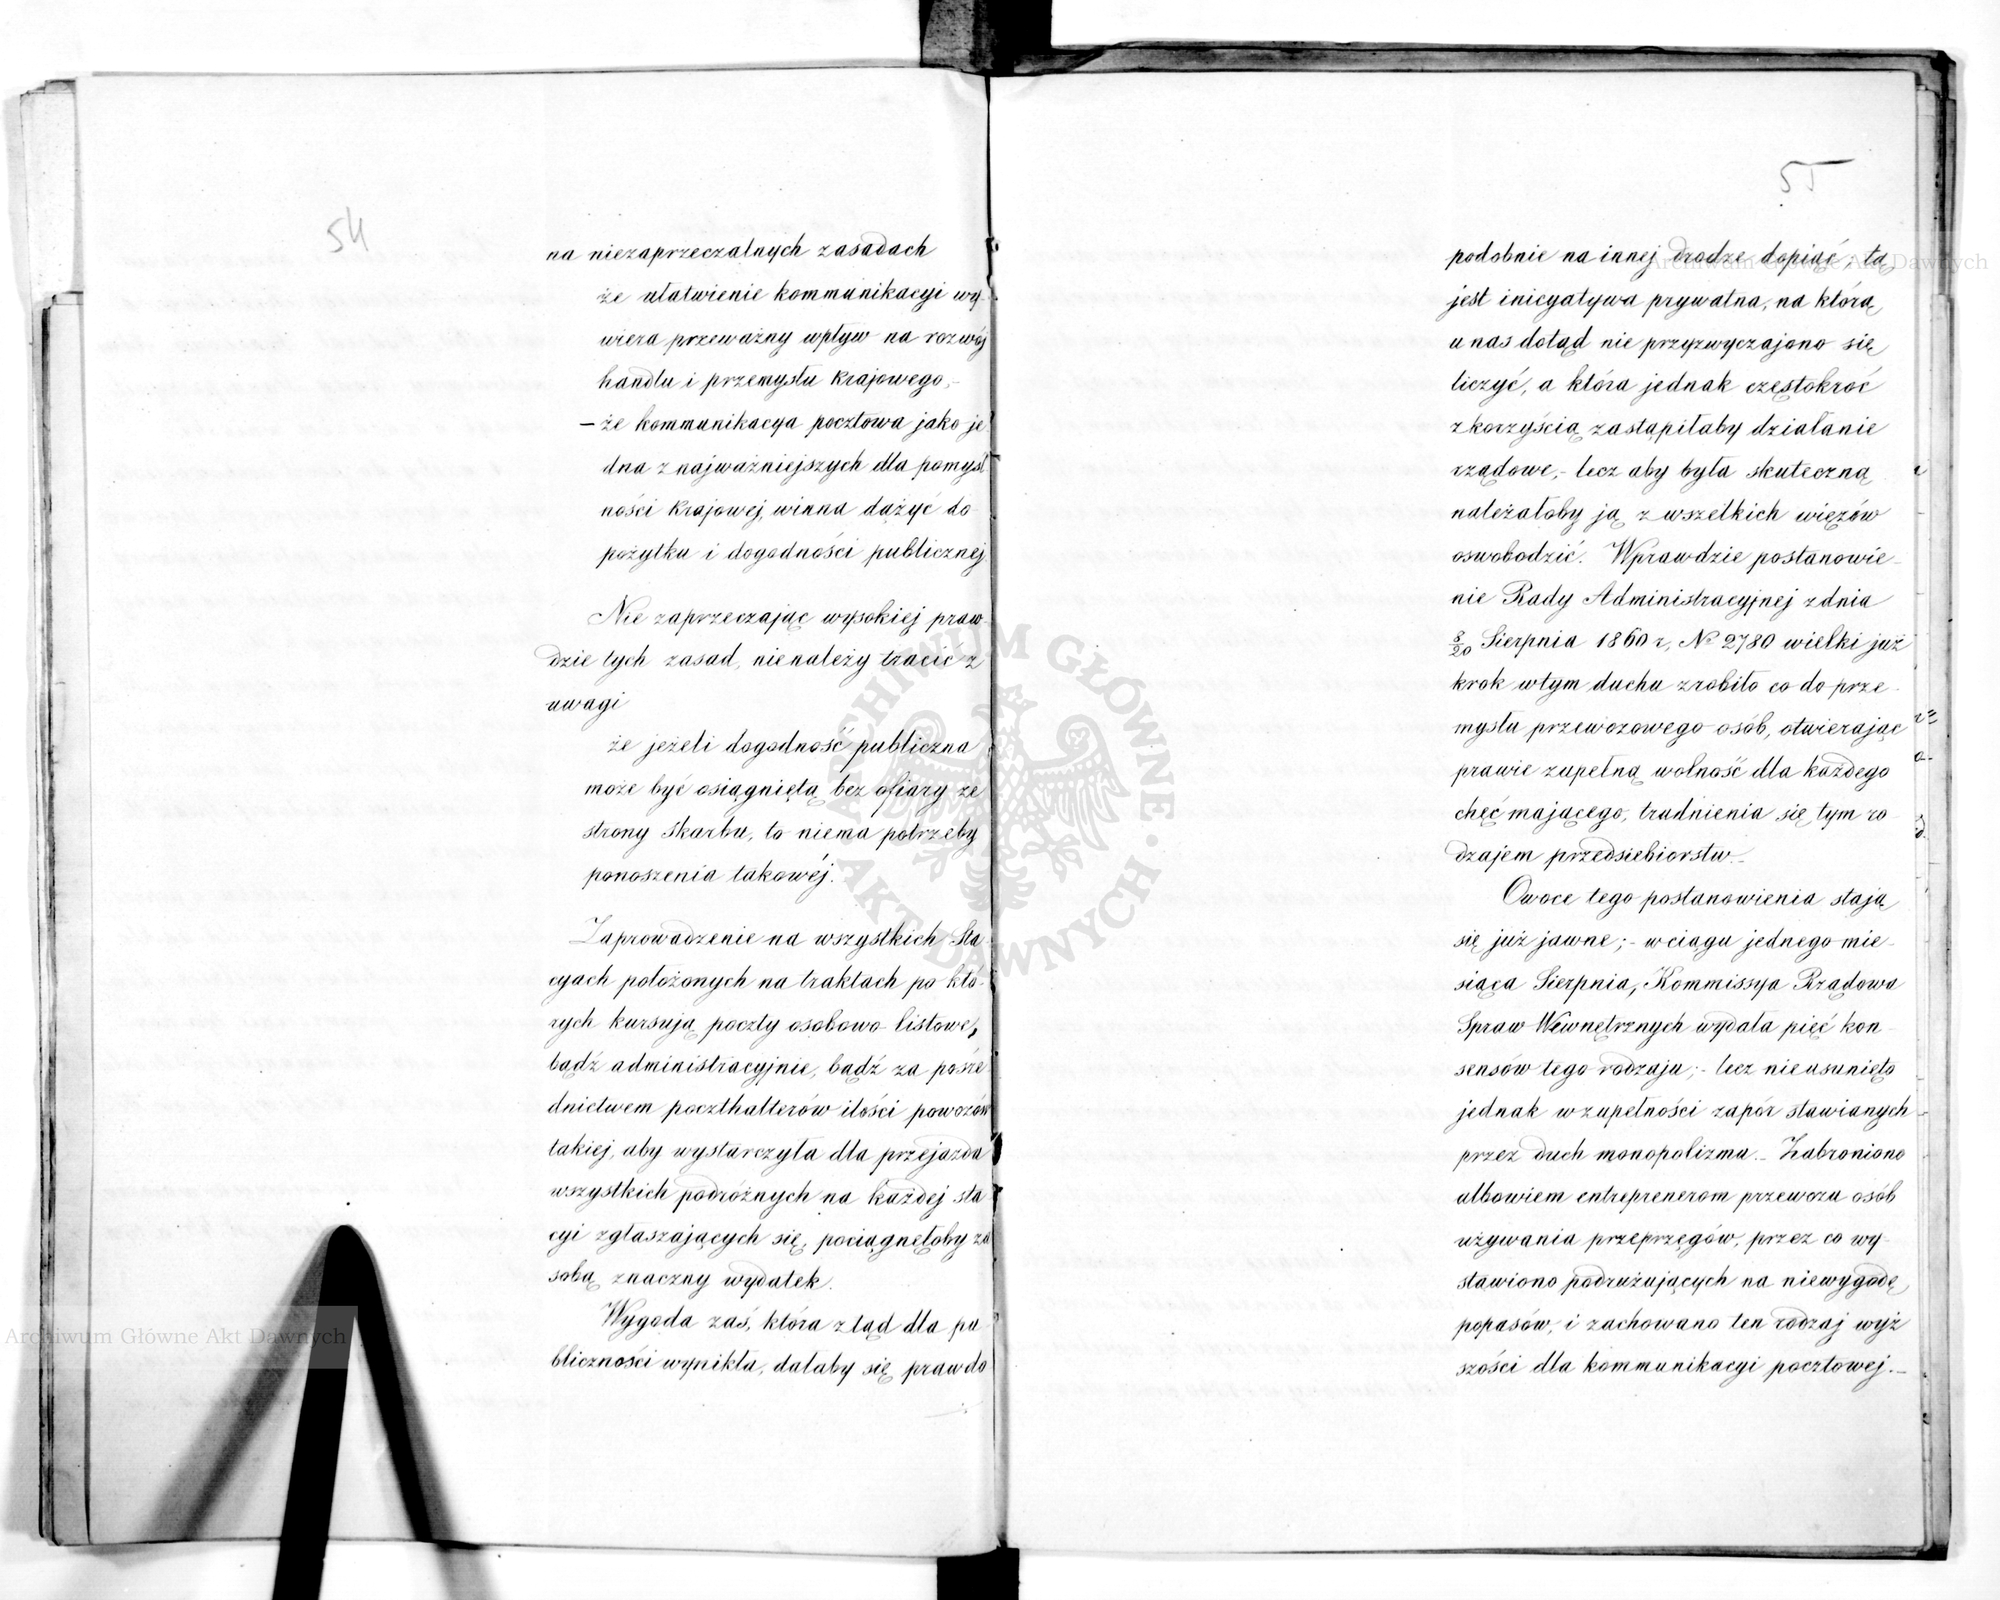 54
na niezaprzeczalnych zasadach
że ułatwienie kommunikacyi wy-
wiera przeważny wpływ na rozwój
handlu i przemysłu krajowego,-
– że kommunikacya pocztowa jako je
dna z najważniejszych dla pomyśl
ności krajowej, winna dążyć do
pożytku i dogodności publicznej
Nie zaprzeczając wysokiej praw-
dzie tych zasad, nienależy tracić z
uwagi
że jeżeli dogodność publiczna
może być osiągniętą bez ofiary ze
strony skarbu, to niema potrzeby
ponoszenia takowéj.
Zaprowadzenie na wszystkich Sta
cyach położonych na traktach po któ-
rych kursują poczty osobowo listowe,
bądź administracyjnie, bądź za pośre
dnictwem poczthalterów ilości powozów
takiej, aby wystarczyła dla przejazdu
wszystkich podróżnych na każdej sta
cyi zgłaszających się, pociągnęłoby za
sobą znaczny wydatek.
Wygoda zaś, która ztąd dla pu
bliczności wynikła, dałaby się prawdo
55
podobnie na innej drodze dopiąć, tą
jest inicyatywa prywatna, na którą
u nas dotąd nie przyzwyczajono się
liczyć, a która jednak częstokroć
z korzyścią zastąpiłaby działanie
rządowe,- lecz aby była skuteczną
należałoby ją z wszelkich więzów
oswobodzić. Wprawdzie postanowie-
nie Rady Administracyjnej z dnia
8/20 Sierpnia 1860 r, № 2780 wielki już
krok w tym duchu zrobiło co do prze-
mysłu przewozowego osób, otwierając
prawie zupełną wolność dla każdego
chęć mającego, trudnienia się tym ro
dzajem przedsiebiorstw.-
Owoce tego postanowienia stają
się już jawne;- w ciągu jednego mie-
siąca Sierpnia, Kommissya Rządowa
Spraw Wewnętrznych wydała pięć kon-
sensów tego rodzaju;- lecz nieusunięto
jednak w zupełności zapór stawianych
przez duch monopolizma.- Zabroniono
albowiem entreprenerom przewozu osób
używania przeprzęgów, przez co wy-
stawiono podrużujących na niewygodę
popasów, i zachowano ten rodzaj wyż
szości dla kommunikacyi pocztowej.-
Archiwum Główne Akt Dawnych
Archiwum Główne Akt Dawnych
ARCHIWUM GŁÓWNE · AKT DAWNYCH ·